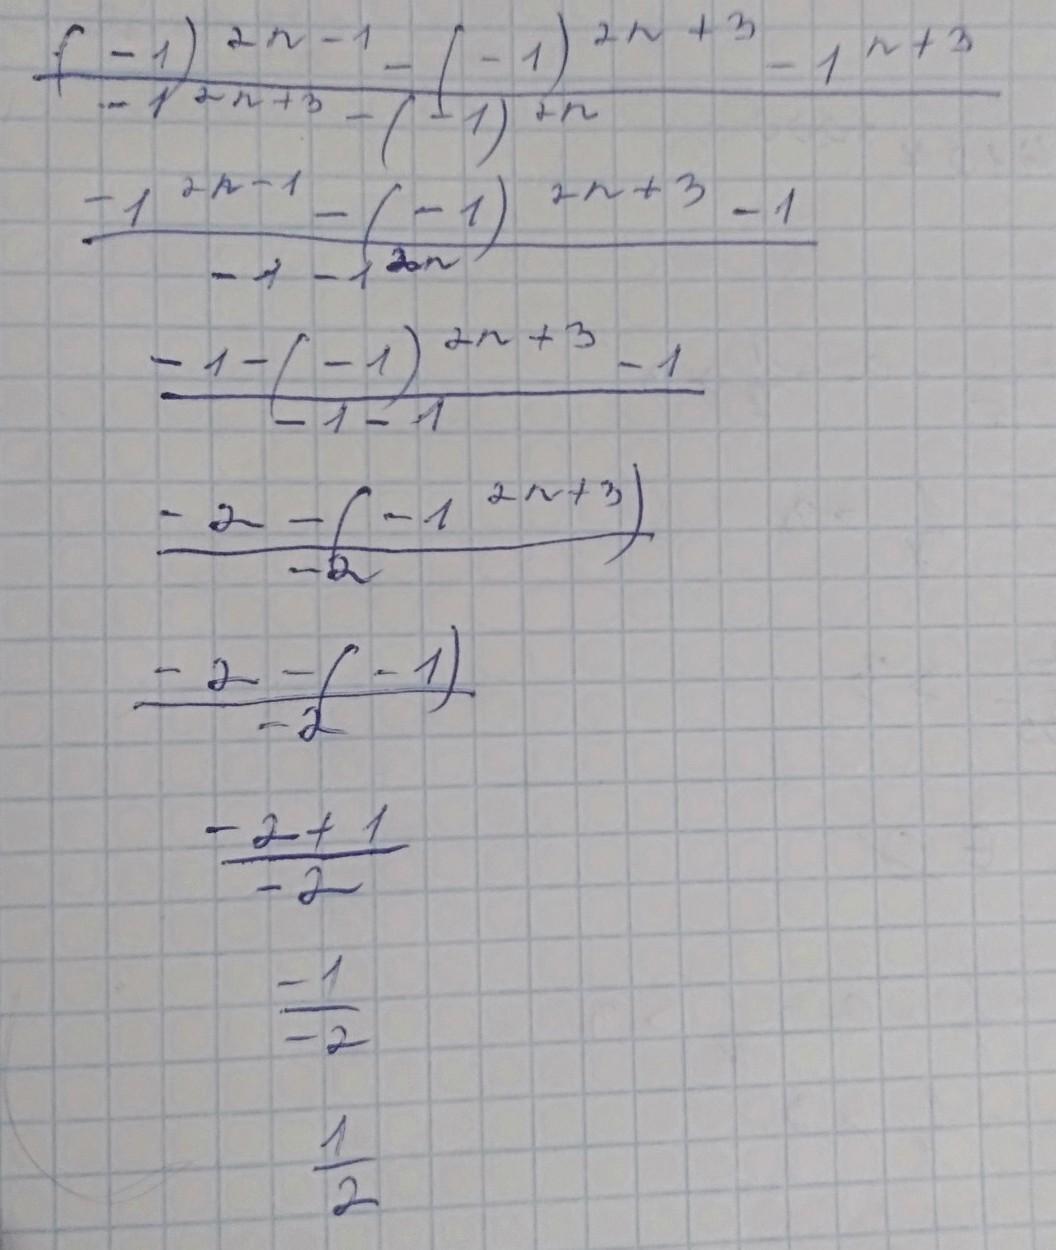 (-1)^{2n-1} - (-1)^{2n+3} - 1^{n+3}
-1^{2n+3} - (-1)^{2n}
-1^{2n-1} - (-1)^{2n+3} - 1
-1 - 1^{2n}
-1 - (-1)^{2n+3} - 1
-1 - 1
-2 - (-1^{2n+3})
-2
-2 - (-1)
-2
-2 + 1
-2
-1
-2
1
2